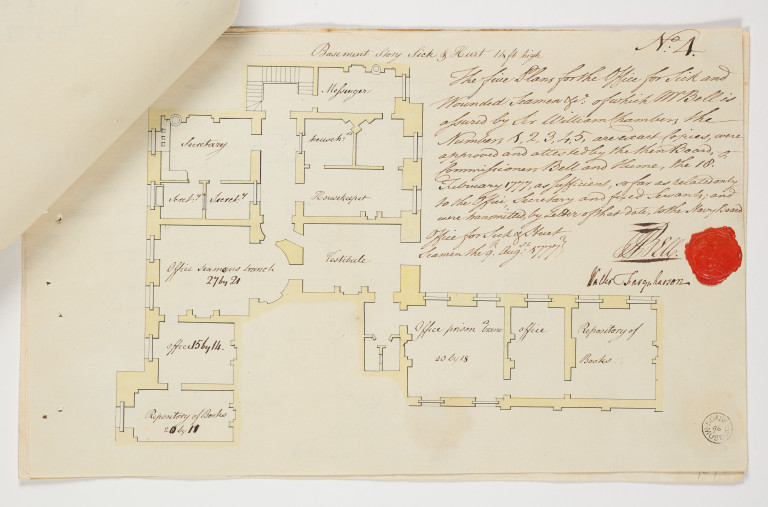 Basement Story Sick & Hurt 14 ft high
No. 4.
The five Plans for the Office for Sick and
Wounded Seamen &c. of which Mr Bell is
assured by Sir William Chambers, the
Numbers 1, 2, 3, 4, 5, are exact Copies, were
approved and attested by the then Board,
Commissioners Bell and Hume, the 18th
February 1777, as sufficient, so far as related only
to the Office, Secretary and fixed Servants; and
were transmitted, by Letter of that date, to the Navy Board
Office for Sick & Hurt
Seamen the
Augst
1777
Bell.
Walter Farquharson
Messenger
Secretary
househ
Secrety
Housekeeper
Office Seamens branch
27 by 20
Vestibule
Office 15 by 14.
Office prison
20 by 18
Office
Repository of
Books
Repository of Books
20 by 11